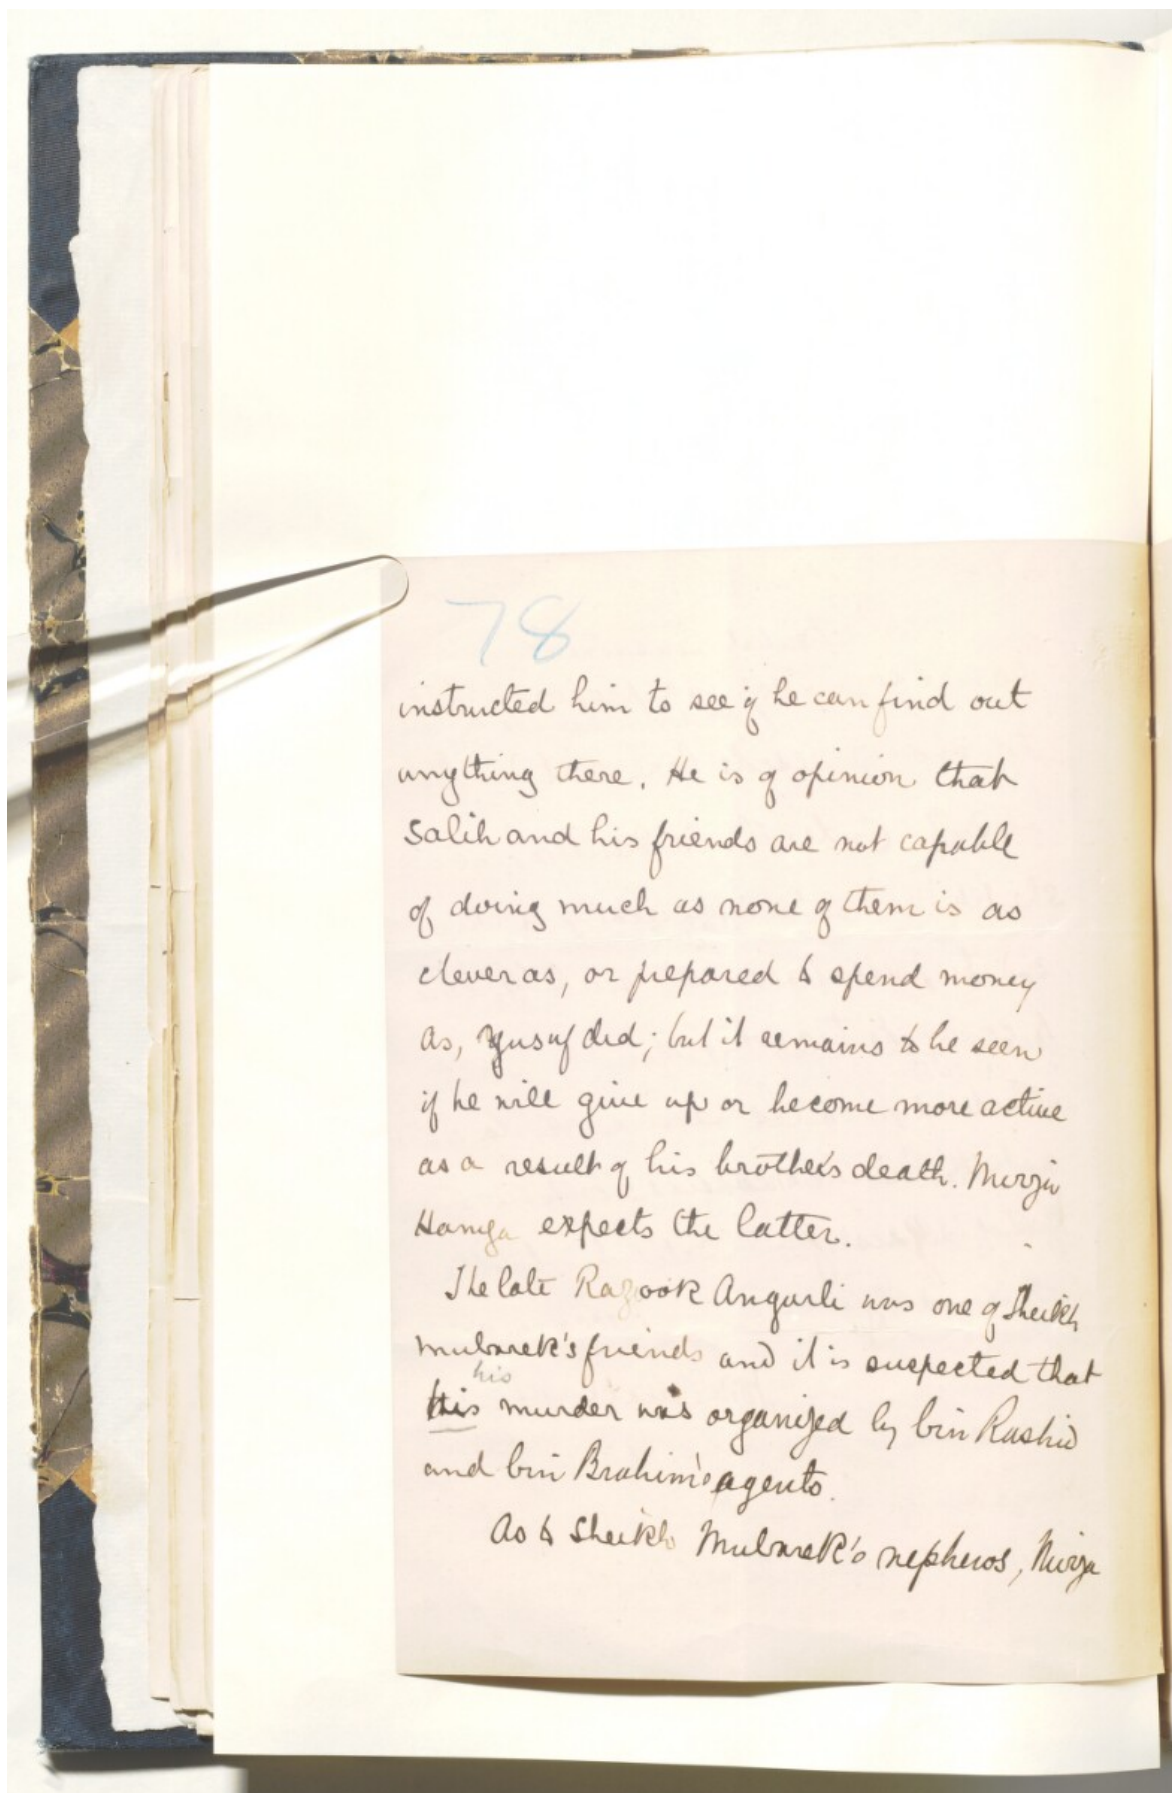 78
instructed him to see if he can find out
anything there. He is of opinion that
Salih and his friends are not capable
of doing much as none of them is as
clever as, or prepared to spend money
as, Yusuf did; but it remains to be seen
if he will give up or become more active
as a result of his brother's death. Mirza
Hamza expects the latter.
The late Razook Angurli was one of Sheikh
Mubarek's friends and it is suspected that
his
this murder was organized by bin Rashid
and bin Brahim's agents.
As to Sheikh Mubarek's nephews, Mirza